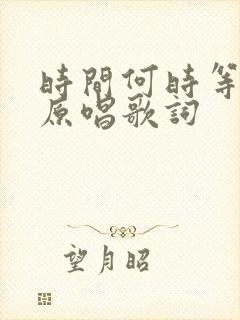 時間何時等
原唱歌詞
望月昭